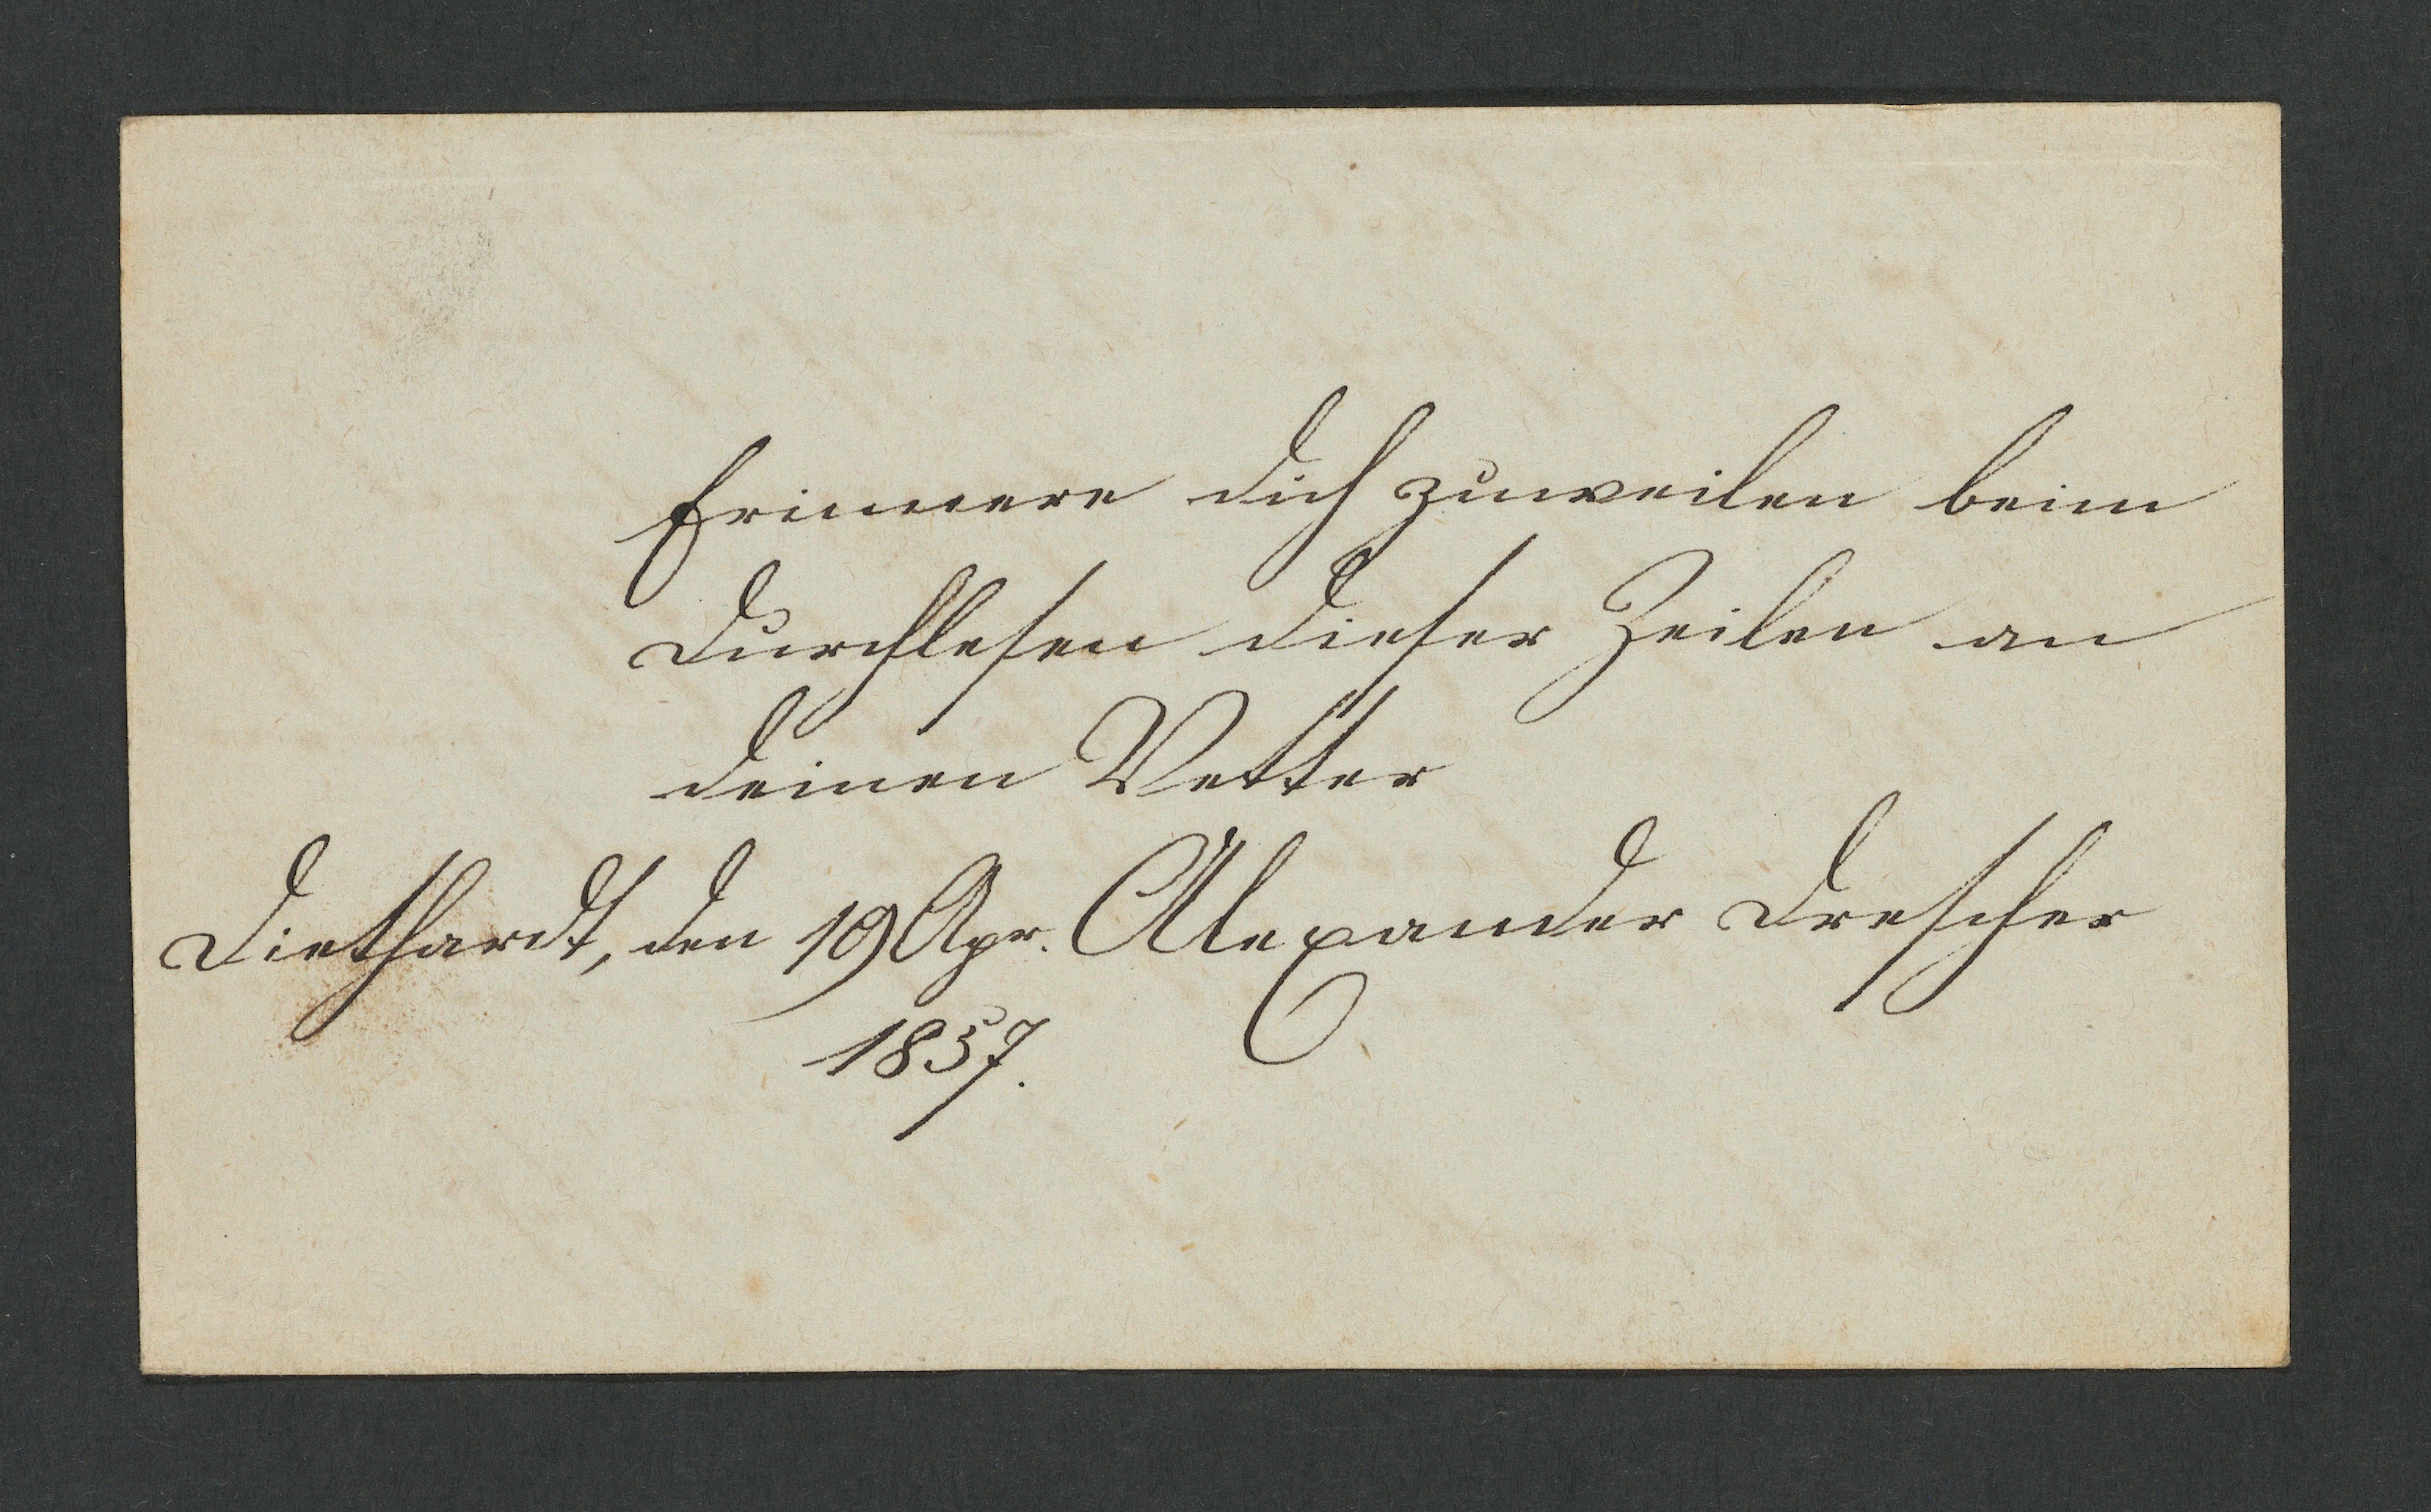 Erinnere dich zuweilen beim
Durchlesen dieser Zeilen an
deinen Vetter
Diethardt, den 19 Apr. Alexander Drescher
1857.